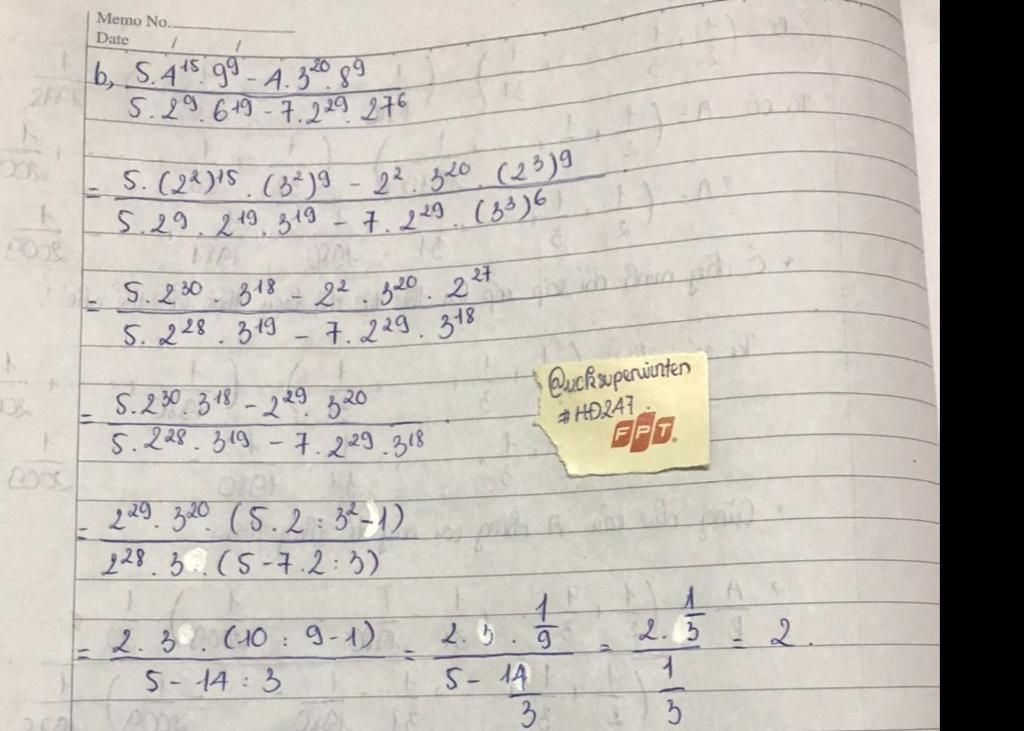 Memo No.
Date / /
b, 5.4¹⁵.9⁹ - 4.3²⁰.8⁹
5.2⁹.6¹⁹ - 7.2²⁹.27⁶
= 5.(2²)¹⁵.(3²)⁹ - 2².3²⁰.(2³)⁹
5.2⁹.2¹⁹.3¹⁹ - 7.2²⁹.(3³)⁶
= 5.2³⁰.3¹⁸ - 2².3²⁰.2²⁷
5.2²⁸.3¹⁹ - 7.2²⁹.3¹⁸
= 5.2³⁰.3¹⁸ - 2²⁹.3²⁰
5.2²⁸.3¹⁹ - 7.2²⁹.3¹⁸
@ucksuperwinten
#HD247.
FPT
= 2²⁹.3²⁰.(5.2:3²-1)
2²⁸.3.(5-7.2:3)
= 2.3.(10:9-1) = 2.3.1/9 = 2.1/3 = 2.
5-14:3 5-14/3 1/3